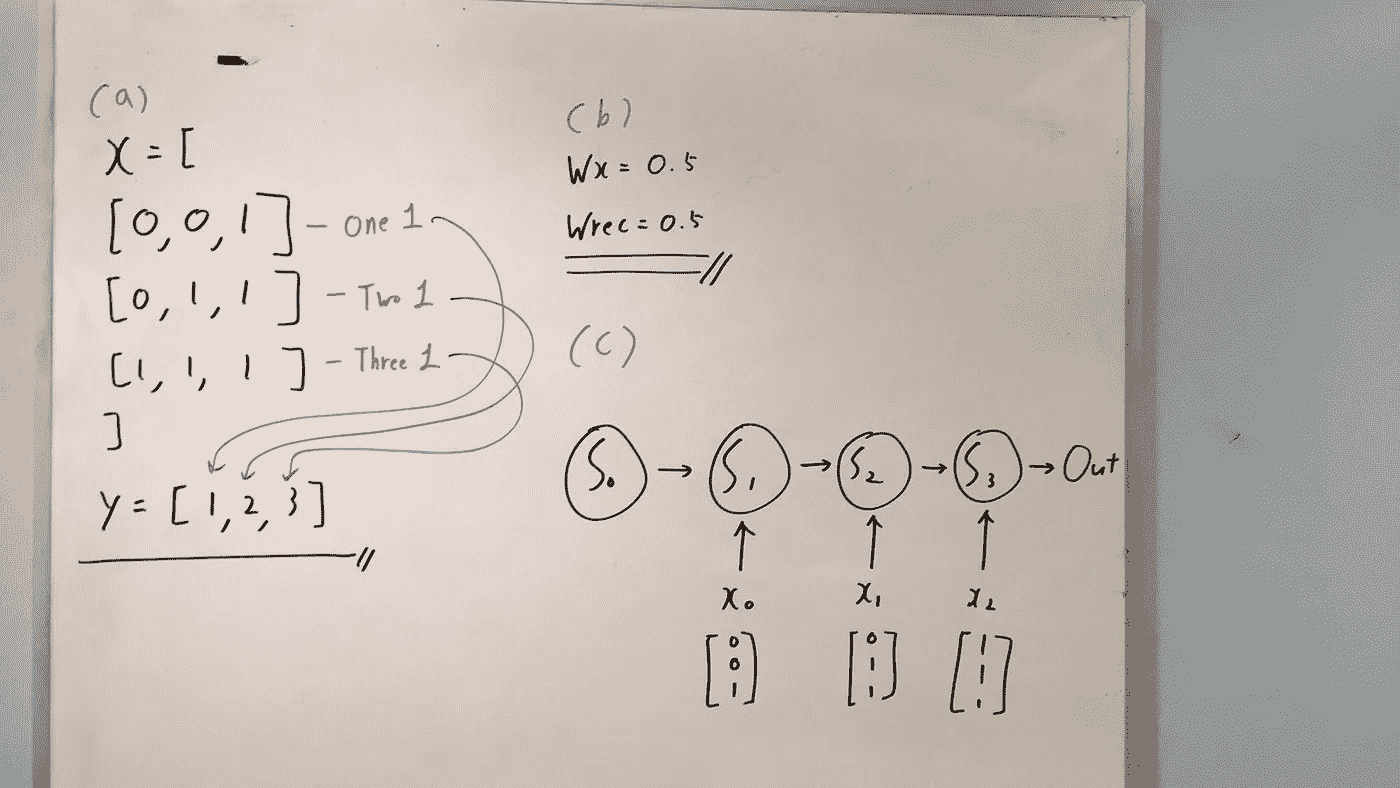 (a)
X = [
[0, 0, 1] - One 1
[0, 1, 1] - Two 1
[1, 1, 1] - Three 1
]
Y = [1, 2, 3]
(b)
Wx = 0.5
Wrec = 0.5
(c)
S₀ → S₁ → S₂ → S₃ → Out
x₀ x₁ x₂
0 0 1
0 1 1
1 1 1